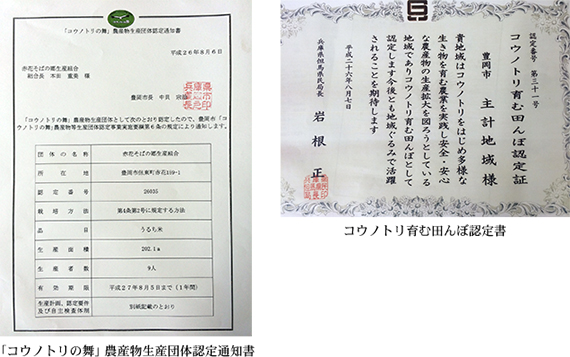 「コウノトリの舞」農産物生産団体認定通知書
平成26年8月6日
赤花そばの郷生産組合
総合長 本田 重美 様
豊岡市長 中貝 宗治
「コウノトリの舞」農産物生産団体として次のとおり認定したので、豊岡市「コ
ウノトリの舞」農産物等生産団体認定事業実施要領第6条の規定により通知します。
団体の名称 赤花そばの郷生産組合
所在地 豊岡市但東町赤花159-1
認定番号 26035
栽培方法 第4条第2号に規定する方法
品目 うるち米
生産面積 202.1a
生産者数 9人
有効期限 平成27年8月5日まで(1年間)
生産計画、認定要件
及び自主検査体制 別紙記載のとおり
「コウノトリの舞」農産物生産団体認定通知書
認定番号 第三十一号
コウノトリ育む田んぼ認定証
豊岡市 主計地域様
貴地域はコウノトリをはじめ多様な
生き物を育む農業を実践し安全・安心
な農産物の生産拡大を図ろうとしている
地域でありコウノトリ育む田んぼとして
認定します今後とも地域ぐるみで活躍
されることを期待します
平成二十六年八月七日
兵庫県但馬県民局長 岩根 正
コウノトリ育む田んぼ認定書